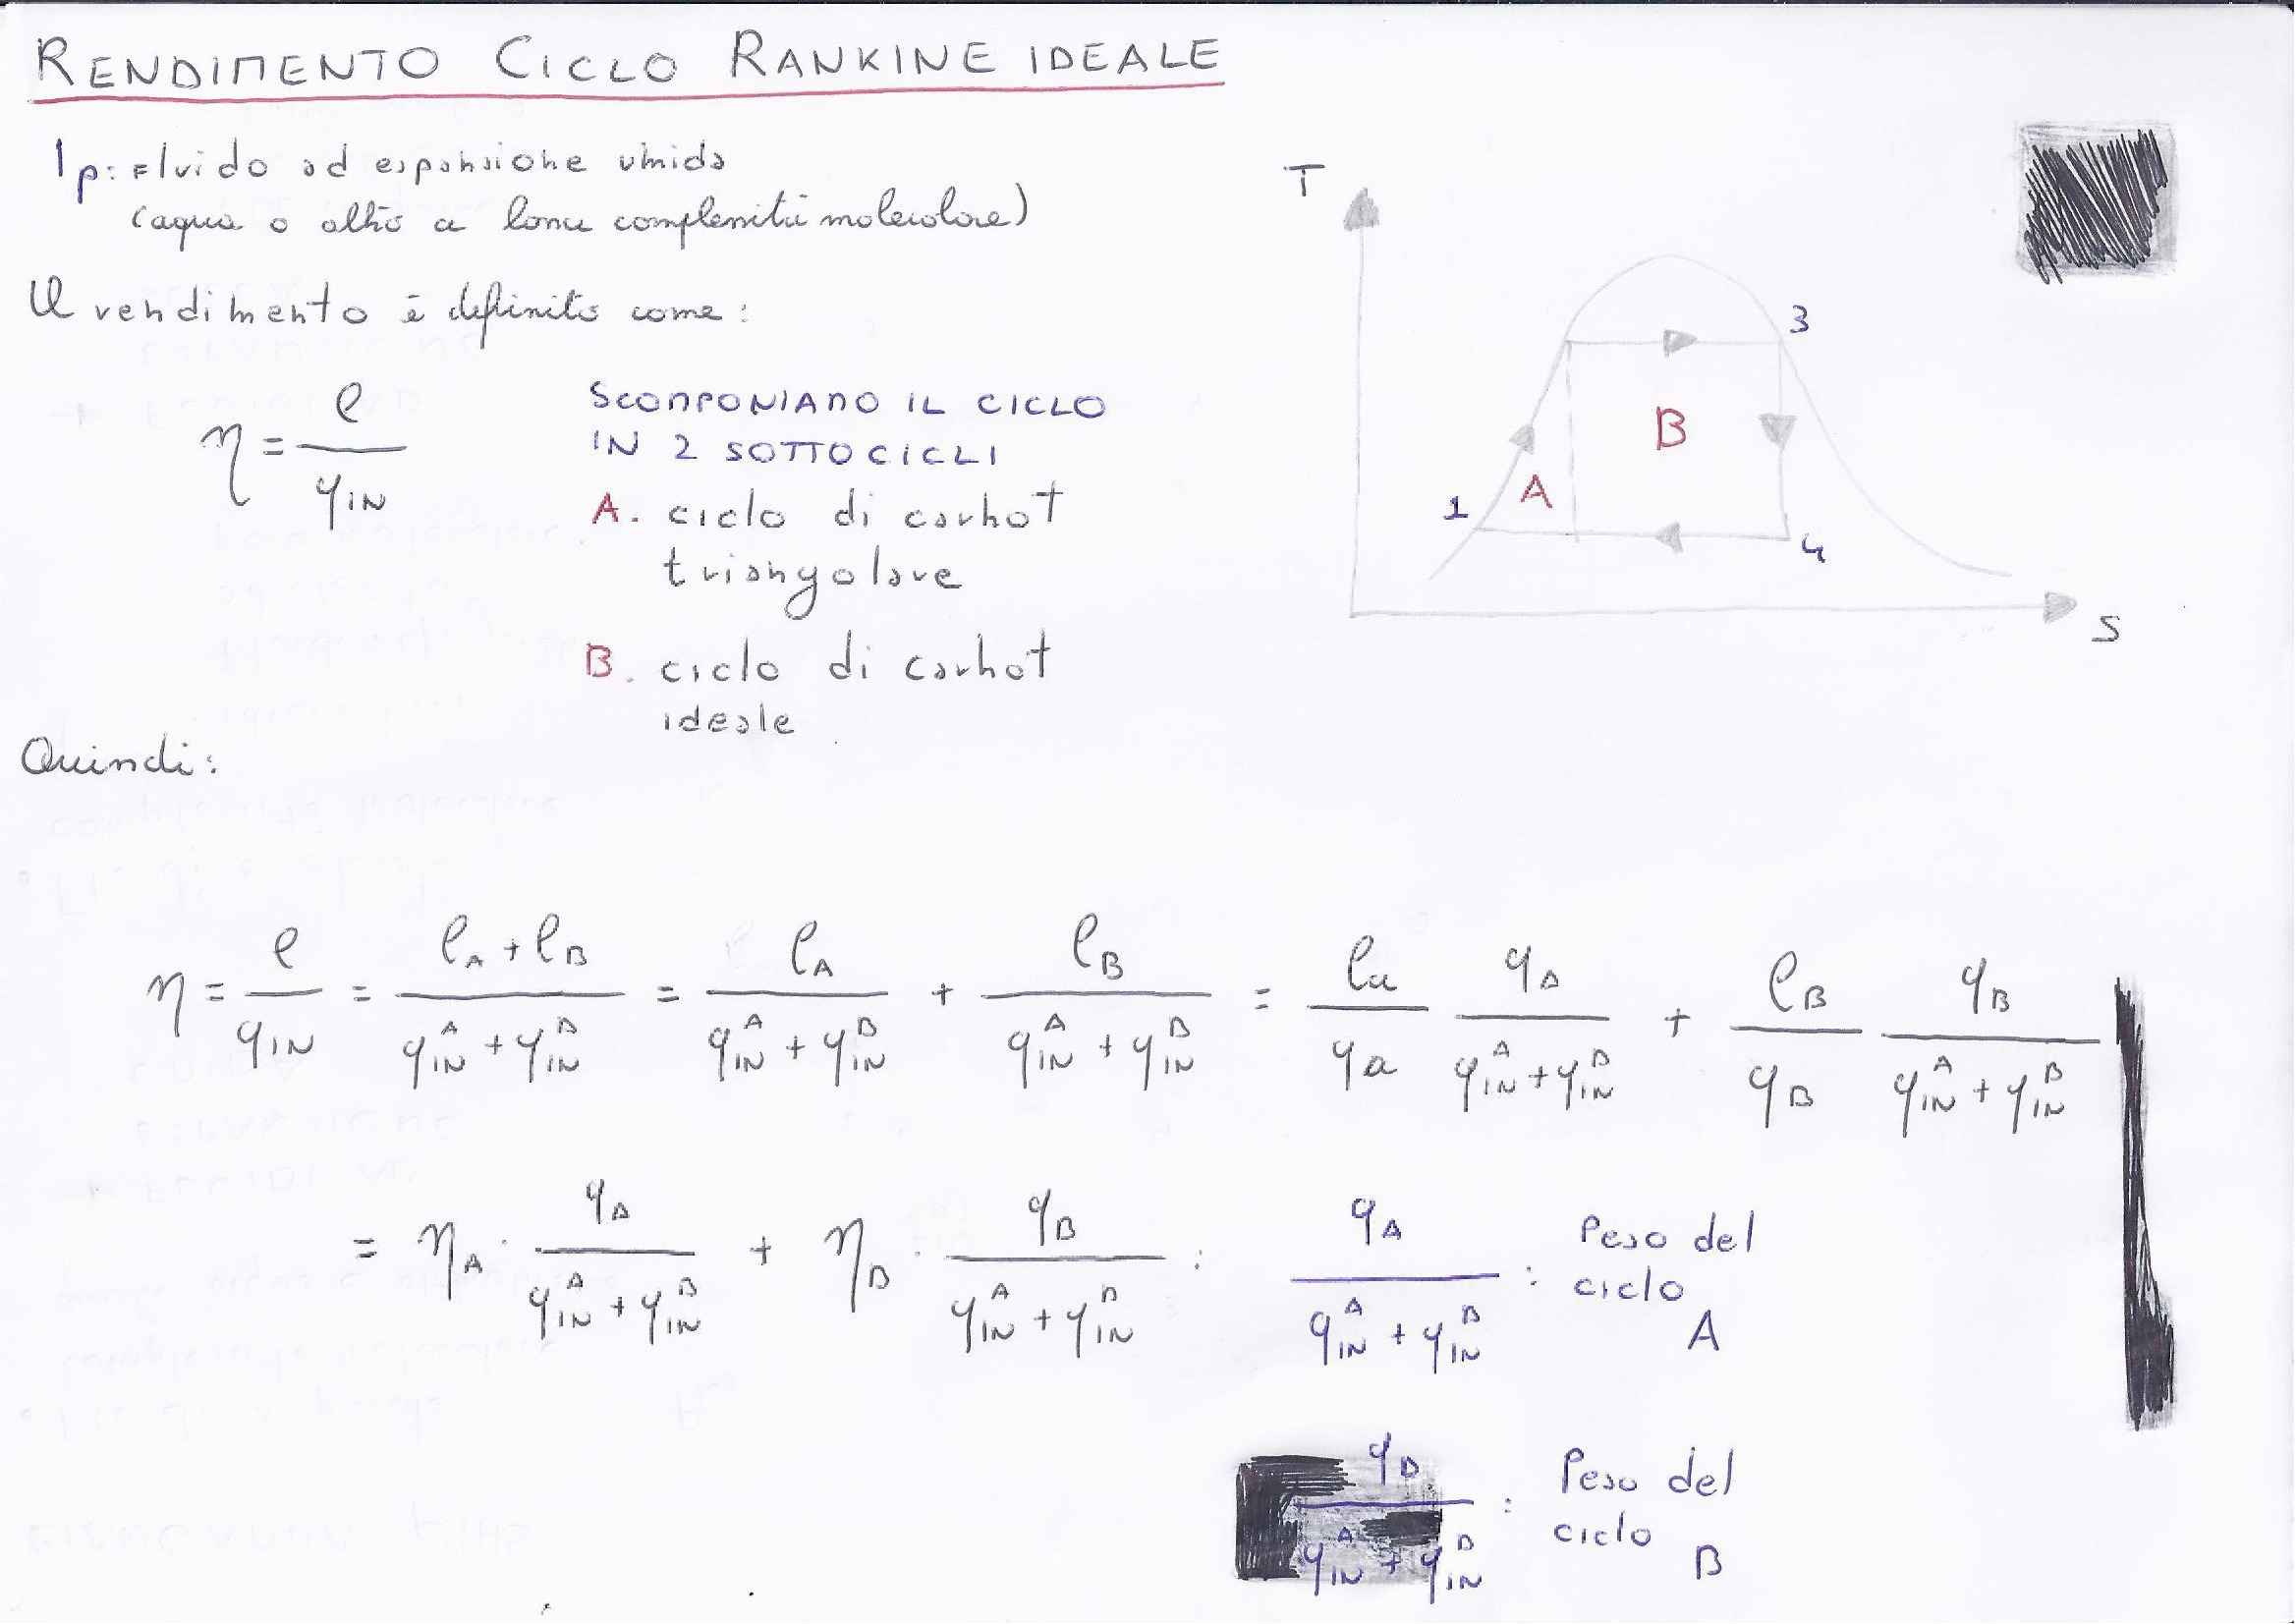 RENDIMENTO CICLO RANKINE IDEALE
Ip: Fluido ad espansione umida
(aqua o altro a bassa complessità molecolare)
Il rendimento è definito come:
η = l / q_IN
SCOMPONIAMO IL CICLO
IN 2 SOTTOCICLI
A. ciclo di carnot
triangolare
B. ciclo di carnot
ideale
T
3
B
A
1
4
S
Quindi:
η = l / q_IN = (l_A + l_B) / (q_IN^A + q_IN^B) = l_A / (q_IN^A + q_IN^B) + l_B / (q_IN^A + q_IN^B) = l_a / q_a q_A / (q_IN^A + q_IN^B) + l_B / q_B q_B / (q_IN^A + q_IN^B)
= η_A · q_A / (q_IN^A + q_IN^B) + η_B · q_B / (q_IN^A + q_IN^B) :
q_A / (q_IN^A + q_IN^B) : Peso del
ciclo
A
q_B / (q_IN^A + q_IN^B) : Peso del
ciclo
B